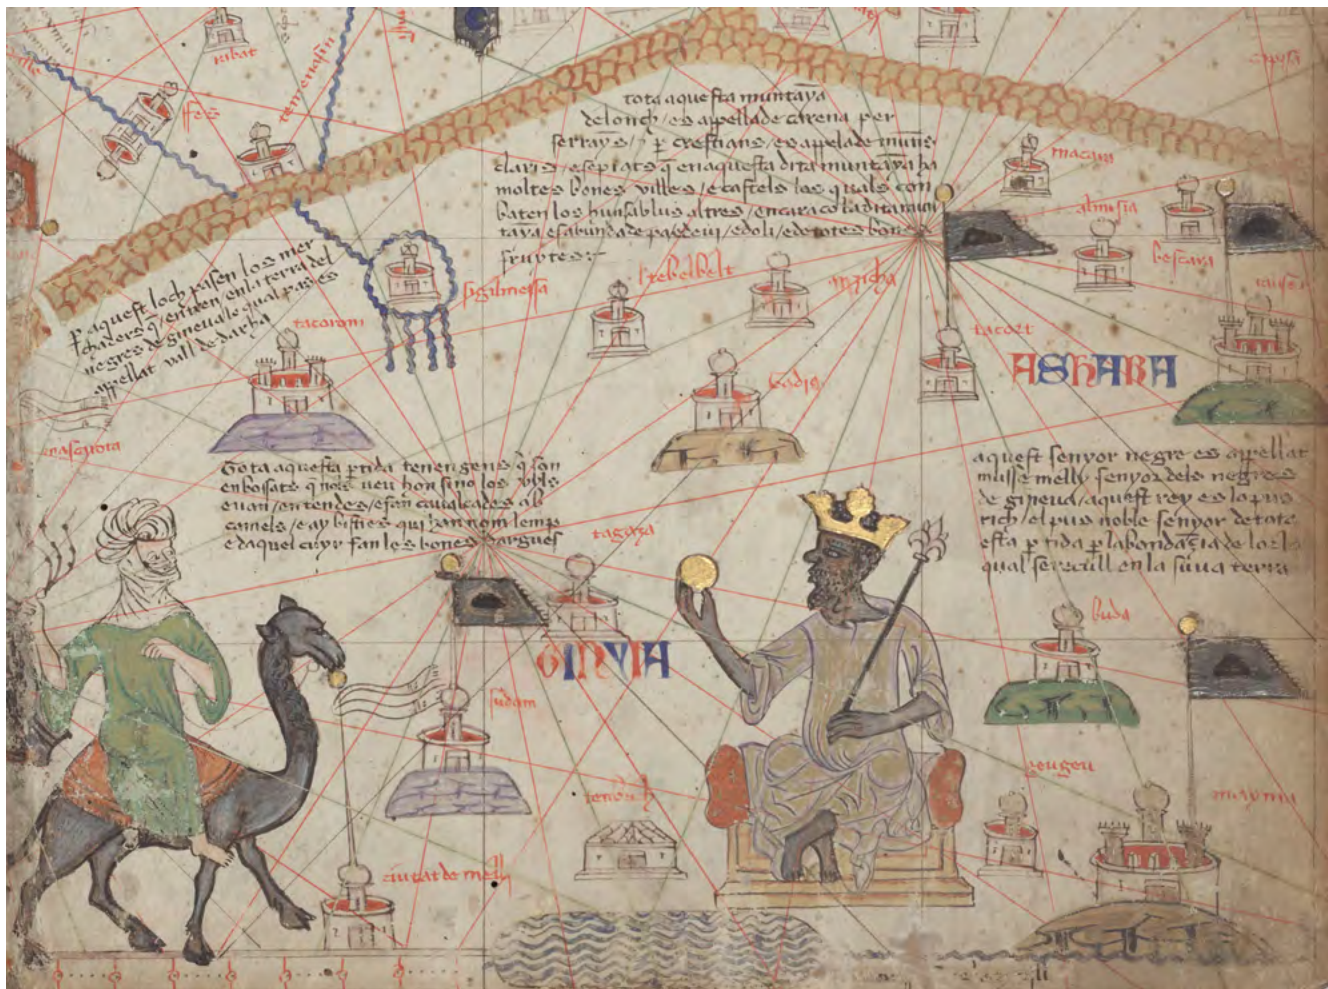 ribat
fes
tota aquesta muntaya
de lonch / es appellade carena per
serrayns / e per crestians / es appelade muns
claris / e sepiats q en aquesta dita muntaya ha
moltes bones villes / e castels los quals com
baten los huns ab lus altres / encara co la dita mun
taya es abundade de pa e de vi / e doli / e de totes bones
fruytes
p aquest loch pasen los mer
chaders q / entren en la terra del
negres de gineva lo qual pas es
appellat vall de darha
sigilmessa
tacoront
tebelbelt
macara
almisia
bescara
tacort
ASHARA
Tota aquesta ptida tenen gens q son
enbossats q nols veu hom sino los uyls
e van / en tendes / e fan cavalcades ab
camels / e ay bisties qui han nom lemp
e daquel cuyr fan les bones dargues
tagaza
aquest senyor negre es appellat
musse melly senyor dels negres
de gineva / aquest rey es lo pus
rich / el pus noble senyor de tota
esta ptida p labondacia de lor lo
qual se recull en la suua terra
buda
GINYIA
sudam
tenbuch
geugeu
mayma
ciutat de melli